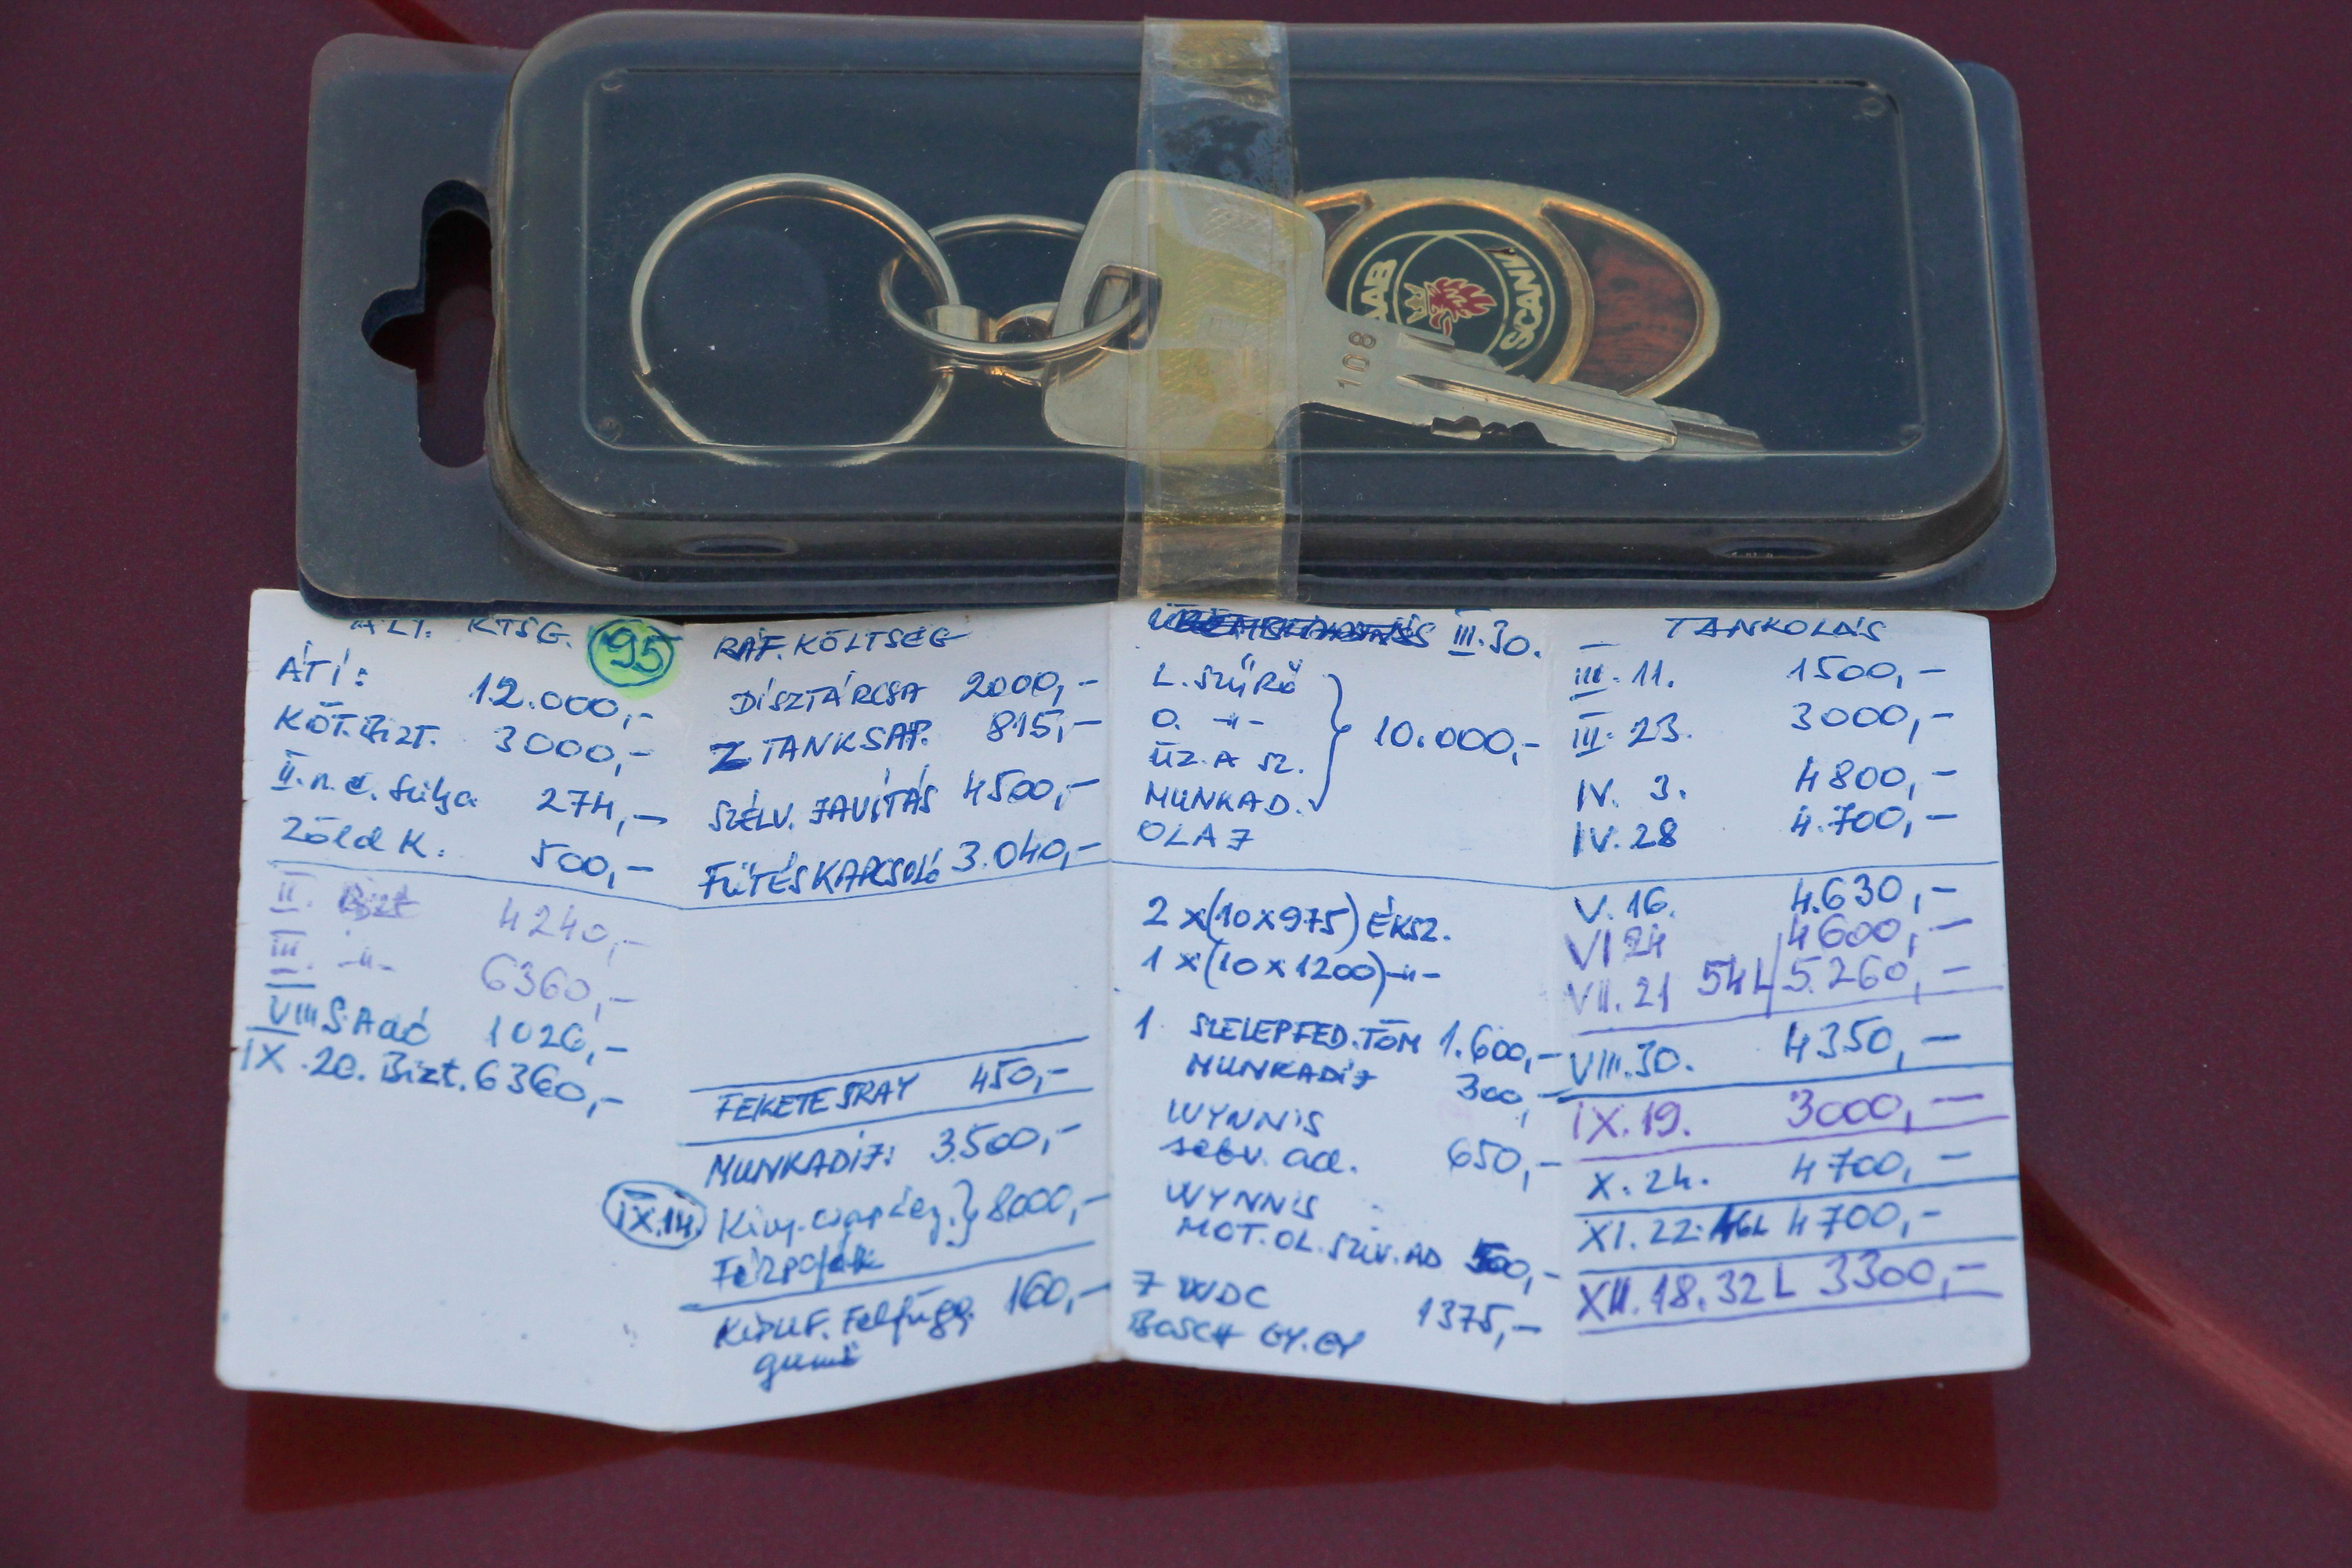 SAAB SCANIA
108
ÁLT. KTSG. 95
ÁTÍ: 12.000,-
KÖT. Bizt. 3000,-
II. n. é. 274,-
Zöld K. 500,-
II. Bizt 4240,-
III. -"- 6360,-
VIII S. Adó 1026,-
IX. 20. Bizt. 6360,-
RÁF. KÖLTSÉG
DÍSZTÁRCSA 2000,-
TANKSAP. 815,-
SZÉLV. JAVÍTÁS 4500,-
FŰTÉSKAPCSOLÓ 3.040,-
FEKETE SPRAY 450,-
MUNKADÍJ: 3.500,-
IX.14. 8000,-
KIPUF. Felfügg. 160,-
gumi
III.30.
L. SZŰRŐ
O. -"-
ÜZ. A SZ. 10.000,-
MUNKAD.
OLAJ
2 x(10x975) ÉKSZ.
1 x(10x1200)-"-
1 SZELEPFED. TÖM 1.600,-
MUNKADÍJ 300,-
WYNN'S
ad. 650,-
WYNN'S
MOT. OL. SZIV. AD 500,-
7 WDC
BOSCH GY. GY 1375,-
TANKOLÁS
III. 11. 1500,-
III. 23. 3000,-
IV. 3. 4800,-
IV. 28 4.700,-
V. 16. 4.630,-
VI 24 4600,-
VII. 21 54L 5.260,-
VIII. 30. 4350,-
IX. 19. 3000,-
X. 24. 4700,-
XI. 22. 46L 4700,-
XII. 18. 32L 3300,-